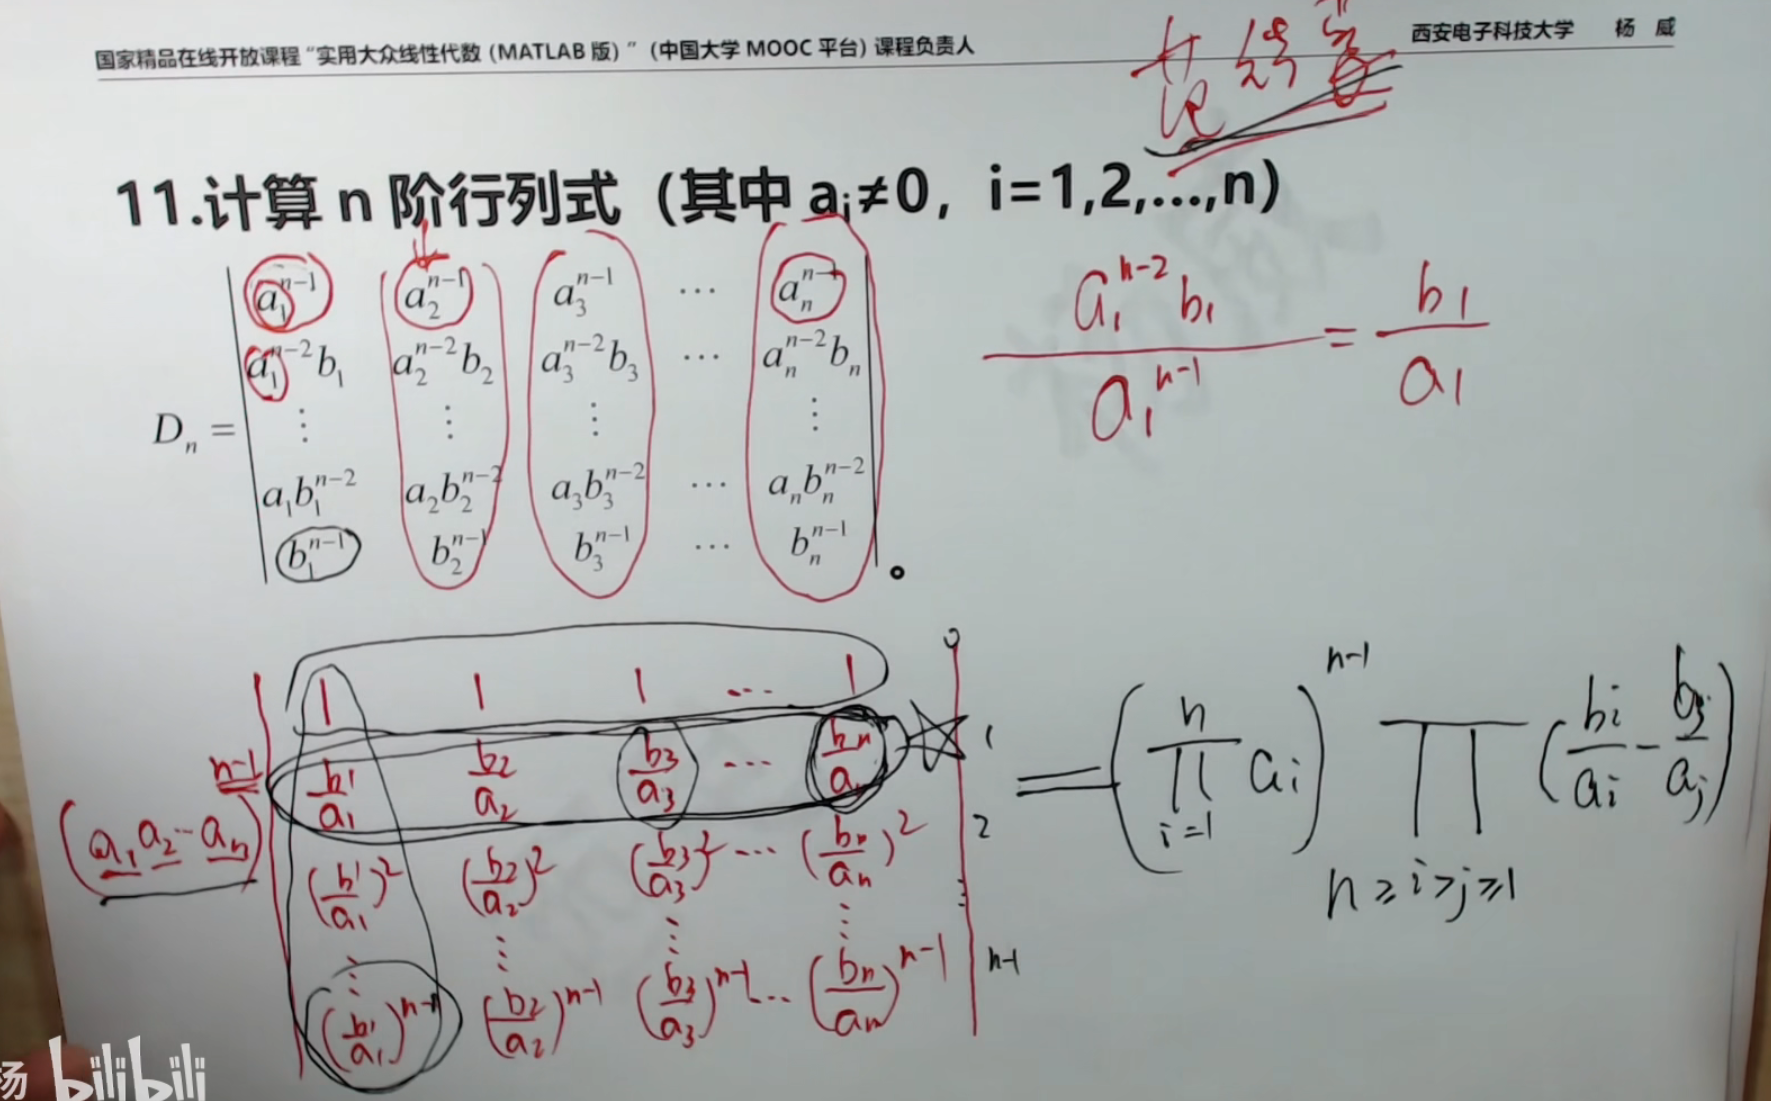 国家精品在线开放课程“实用大众线性代数（MATLAB 版）”（中国大学 MOOC 平台）课程负责人
西安电子科技大学 杨 威
11.计算 n 阶行列式（其中 aᵢ≠0，i=1,2,...,n）
a₁^{n-1} a₂^{n-1} a₃^{n-1} ⋯ aₙ^{n-1}
a₁^{n-2}b₁ a₂^{n-2}b₂ a₃^{n-2}b₃ ⋯ aₙ^{n-2}bₙ
Dₙ = ⋮ ⋮ ⋮ ⋮
a₁b₁^{n-2} a₂b₂^{n-2} a₃b₃^{n-2} ⋯ aₙbₙ^{n-2}
b₁^{n-1} b₂^{n-1} b₃^{n-1} ⋯ bₙ^{n-1} 。
a₁^{n-2}b₁ / a₁^{n-1} = b₁/a₁
1 1 1 ⋯ 1 0
(a₁a₂⋯aₙ)^{n-1} b₁/a₁ b₂/a₂ b₃/a₃ ⋯ bₙ/aₙ 1
(b₁/a₁)² (b₂/a₂)² (b₃/a₃)² ⋯ (bₙ/aₙ)² 2
⋮ ⋮ ⋮ ⋮ ⋮
(b₁/a₁)^{n-1} (b₂/a₂)^{n-1} (b₃/a₃)^{n-1} ⋯ (bₙ/aₙ)^{n-1} n-1
= (∏_{i=1}^{n} aᵢ)^{n-1} ∏_{n≥i>j≥1} (bᵢ/aᵢ − bⱼ/aⱼ)
杨 bilibili